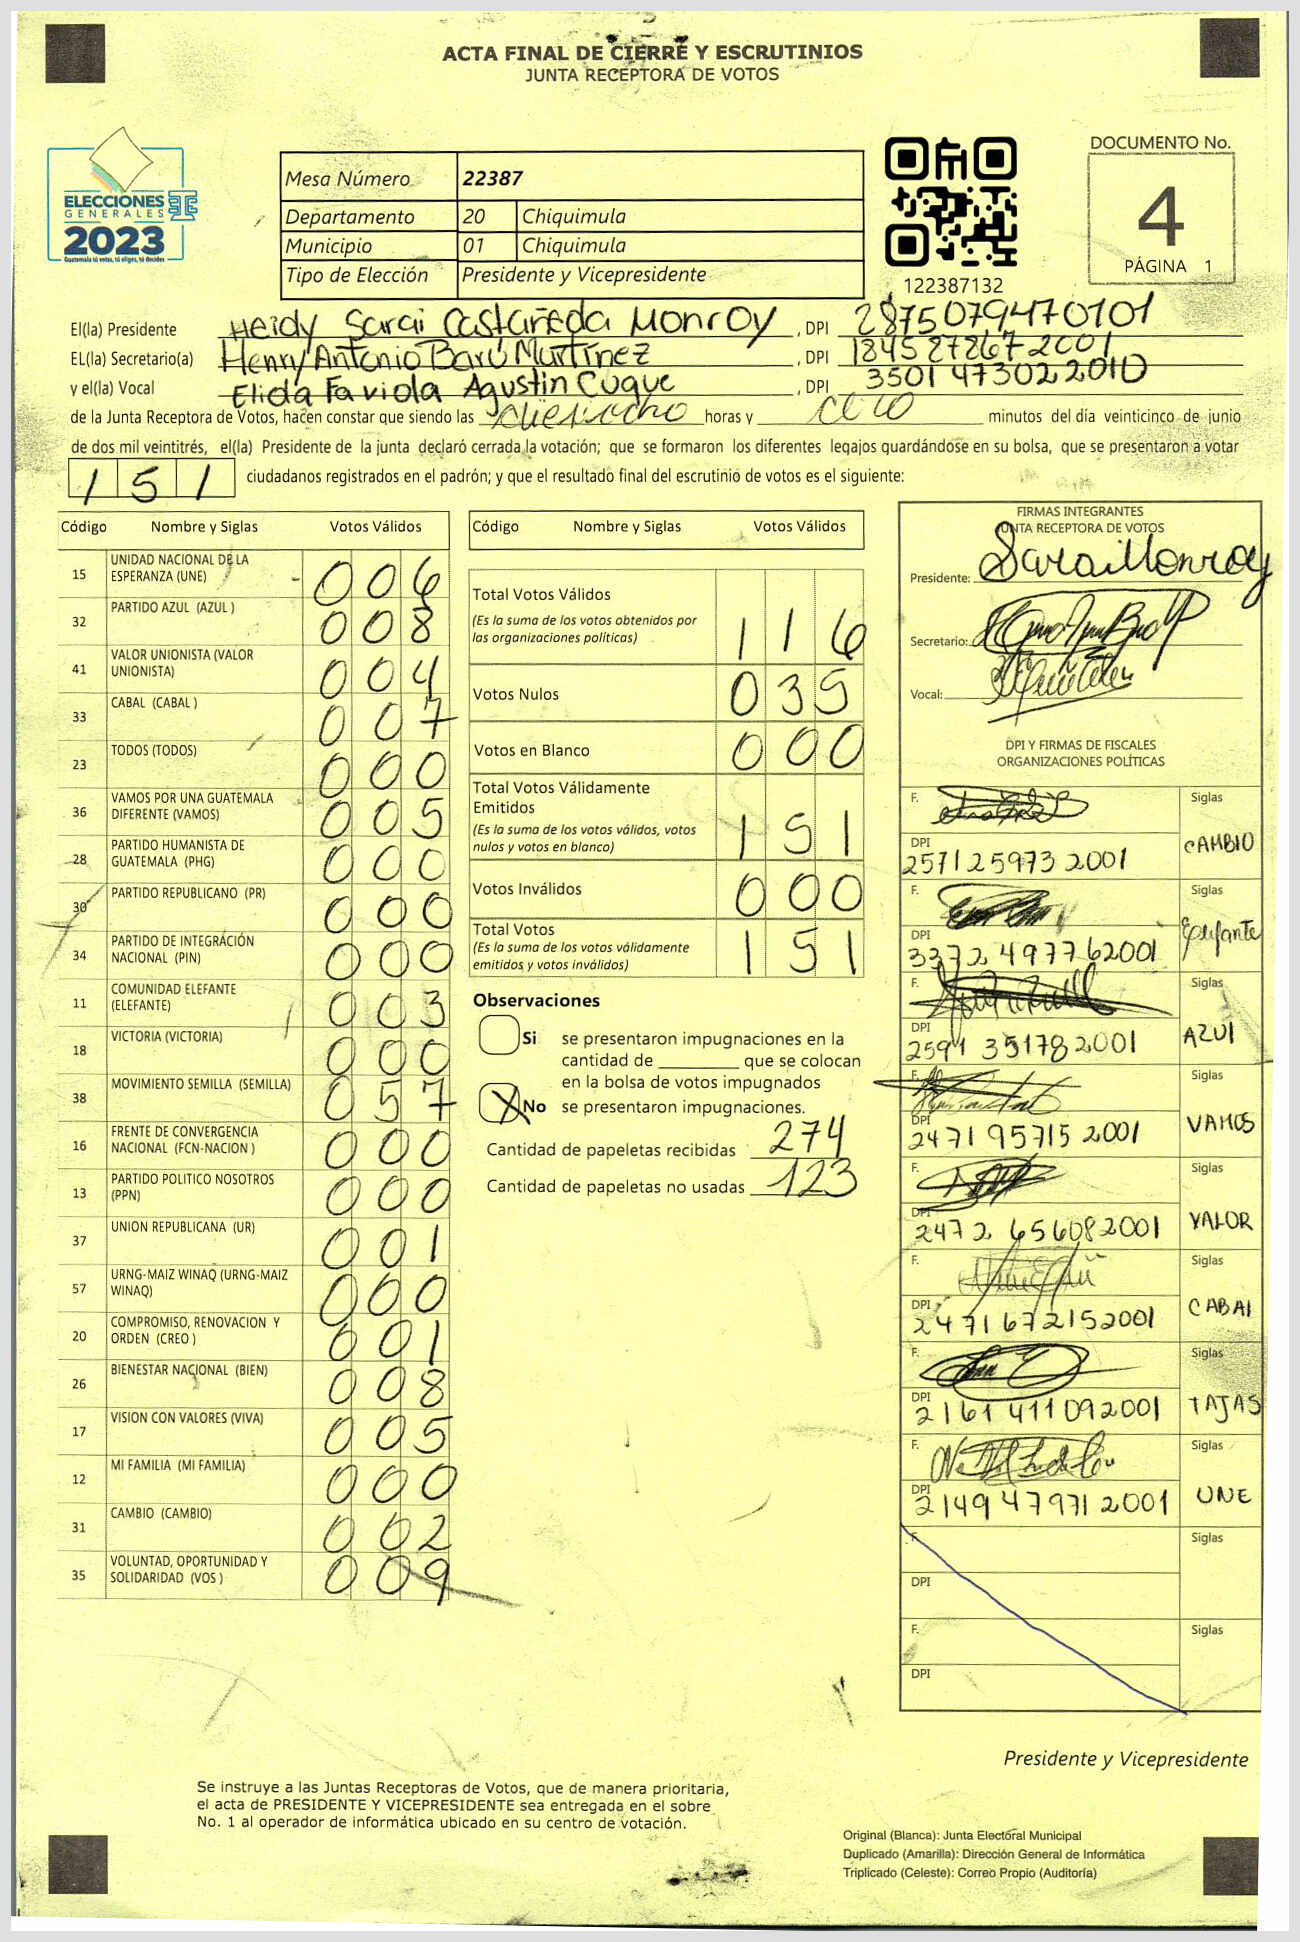 ACTA FINAL DE CIERRE Y ESCRUTINIOS
JUNTA RECEPTORA DE VOTOS
ELECCIONES
GENERALES
2023
Guatemala tú votas, tú eliges, tú decides
Mesa Número 22387
Departamento 20 Chiquimula
Municipio 01 Chiquimula
Tipo de Elección Presidente y Vicepresidente
122387132
DOCUMENTO No.
4
PÁGINA 1
El(la) Presidente Heidy Sarai Castañeda Monroy , DPI 2875079470101
EL(la) Secretario(a) Henry Antonio Baru Martínez , DPI 1845278672001
y el(la) Vocal Elida Faviola Agustin Cuque , DPI 3501473022010
de la Junta Receptora de Votos, hacen constar que siendo las dieciocho horas y cero minutos del día veinticinco de junio
de dos mil veintitrés, el(la) Presidente de la junta declaró cerrada la votación; que se formaron los diferentes legajos guardándose en su bolsa, que se presentaron a votar
151 ciudadanos registrados en el padrón; y que el resultado final del escrutinio de votos es el siguiente:
Código Nombre y Siglas Votos Válidos
15 UNIDAD NACIONAL DE LA ESPERANZA (UNE) 006
32 PARTIDO AZUL (AZUL ) 008
41 VALOR UNIONISTA (VALOR UNIONISTA) 004
33 CABAL (CABAL ) 007
23 TODOS (TODOS) 000
36 VAMOS POR UNA GUATEMALA DIFERENTE (VAMOS) 005
28 PARTIDO HUMANISTA DE GUATEMALA (PHG) 000
30 PARTIDO REPUBLICANO (PR) 000
34 PARTIDO DE INTEGRACIÓN NACIONAL (PIN) 000
11 COMUNIDAD ELEFANTE (ELEFANTE) 003
18 VICTORIA (VICTORIA) 000
38 MOVIMIENTO SEMILLA (SEMILLA) 057
16 FRENTE DE CONVERGENCIA NACIONAL (FCN-NACION ) 000
13 PARTIDO POLITICO NOSOTROS (PPN) 000
37 UNION REPUBLICANA (UR) 001
57 URNG-MAIZ WINAQ (URNG-MAIZ WINAQ) 000
20 COMPROMISO, RENOVACION Y ORDEN (CREO ) 001
26 BIENESTAR NACIONAL (BIEN) 008
17 VISION CON VALORES (VIVA) 005
12 MI FAMILIA (MI FAMILIA) 000
31 CAMBIO (CAMBIO) 002
35 VOLUNTAD, OPORTUNIDAD Y SOLIDARIDAD (VOS ) 009
Código Nombre y Siglas Votos Válidos
Total Votos Válidos
(Es la suma de los votos obtenidos por las organizaciones políticas) 116
Votos Nulos 035
Votos en Blanco 000
Total Votos Válidamente Emitidos
(Es la suma de los votos válidos, votos nulos y votos en blanco) 151
Votos Inválidos 000
Total Votos
(Es la suma de los votos válidamente emitidos y votos inválidos) 151
Observaciones
Si se presentaron impugnaciones en la
cantidad de que se colocan
en la bolsa de votos impugnados
X No se presentaron impugnaciones.
Cantidad de papeletas recibidas 274
Cantidad de papeletas no usadas 123
FIRMAS INTEGRANTES
JUNTA RECEPTORA DE VOTOS
Presidente: Sarai Monroy
Secretario:
Vocal:
DPI Y FIRMAS DE FISCALES
ORGANIZACIONES POLÍTICAS
F. Siglas
DPI 2571259732001 CAMBIO
F. Siglas
DPI 3372497762001 Elefante
F. Siglas
DPI 2591351782001 AZUl
F. Siglas
DPI 2471957152001 VAMOS
F. Siglas
DPI 2472656082001 VALOR
F. Siglas
DPI 2471672152001 CABAl
F. Siglas
DPI 2161411092001 TAJAS
F. Siglas
DPI 2149479712001 UNE
F. Siglas
DPI
F. Siglas
DPI
Presidente y Vicepresidente
Se instruye a las Juntas Receptoras de Votos, que de manera prioritaria,
el acta de PRESIDENTE Y VICEPRESIDENTE sea entregada en el sobre
No. 1 al operador de informática ubicado en su centro de votación.
Original (Blanca): Junta Electoral Municipal
Duplicado (Amarilla): Dirección General de Informática
Triplicado (Celeste): Correo Propio (Auditoría)